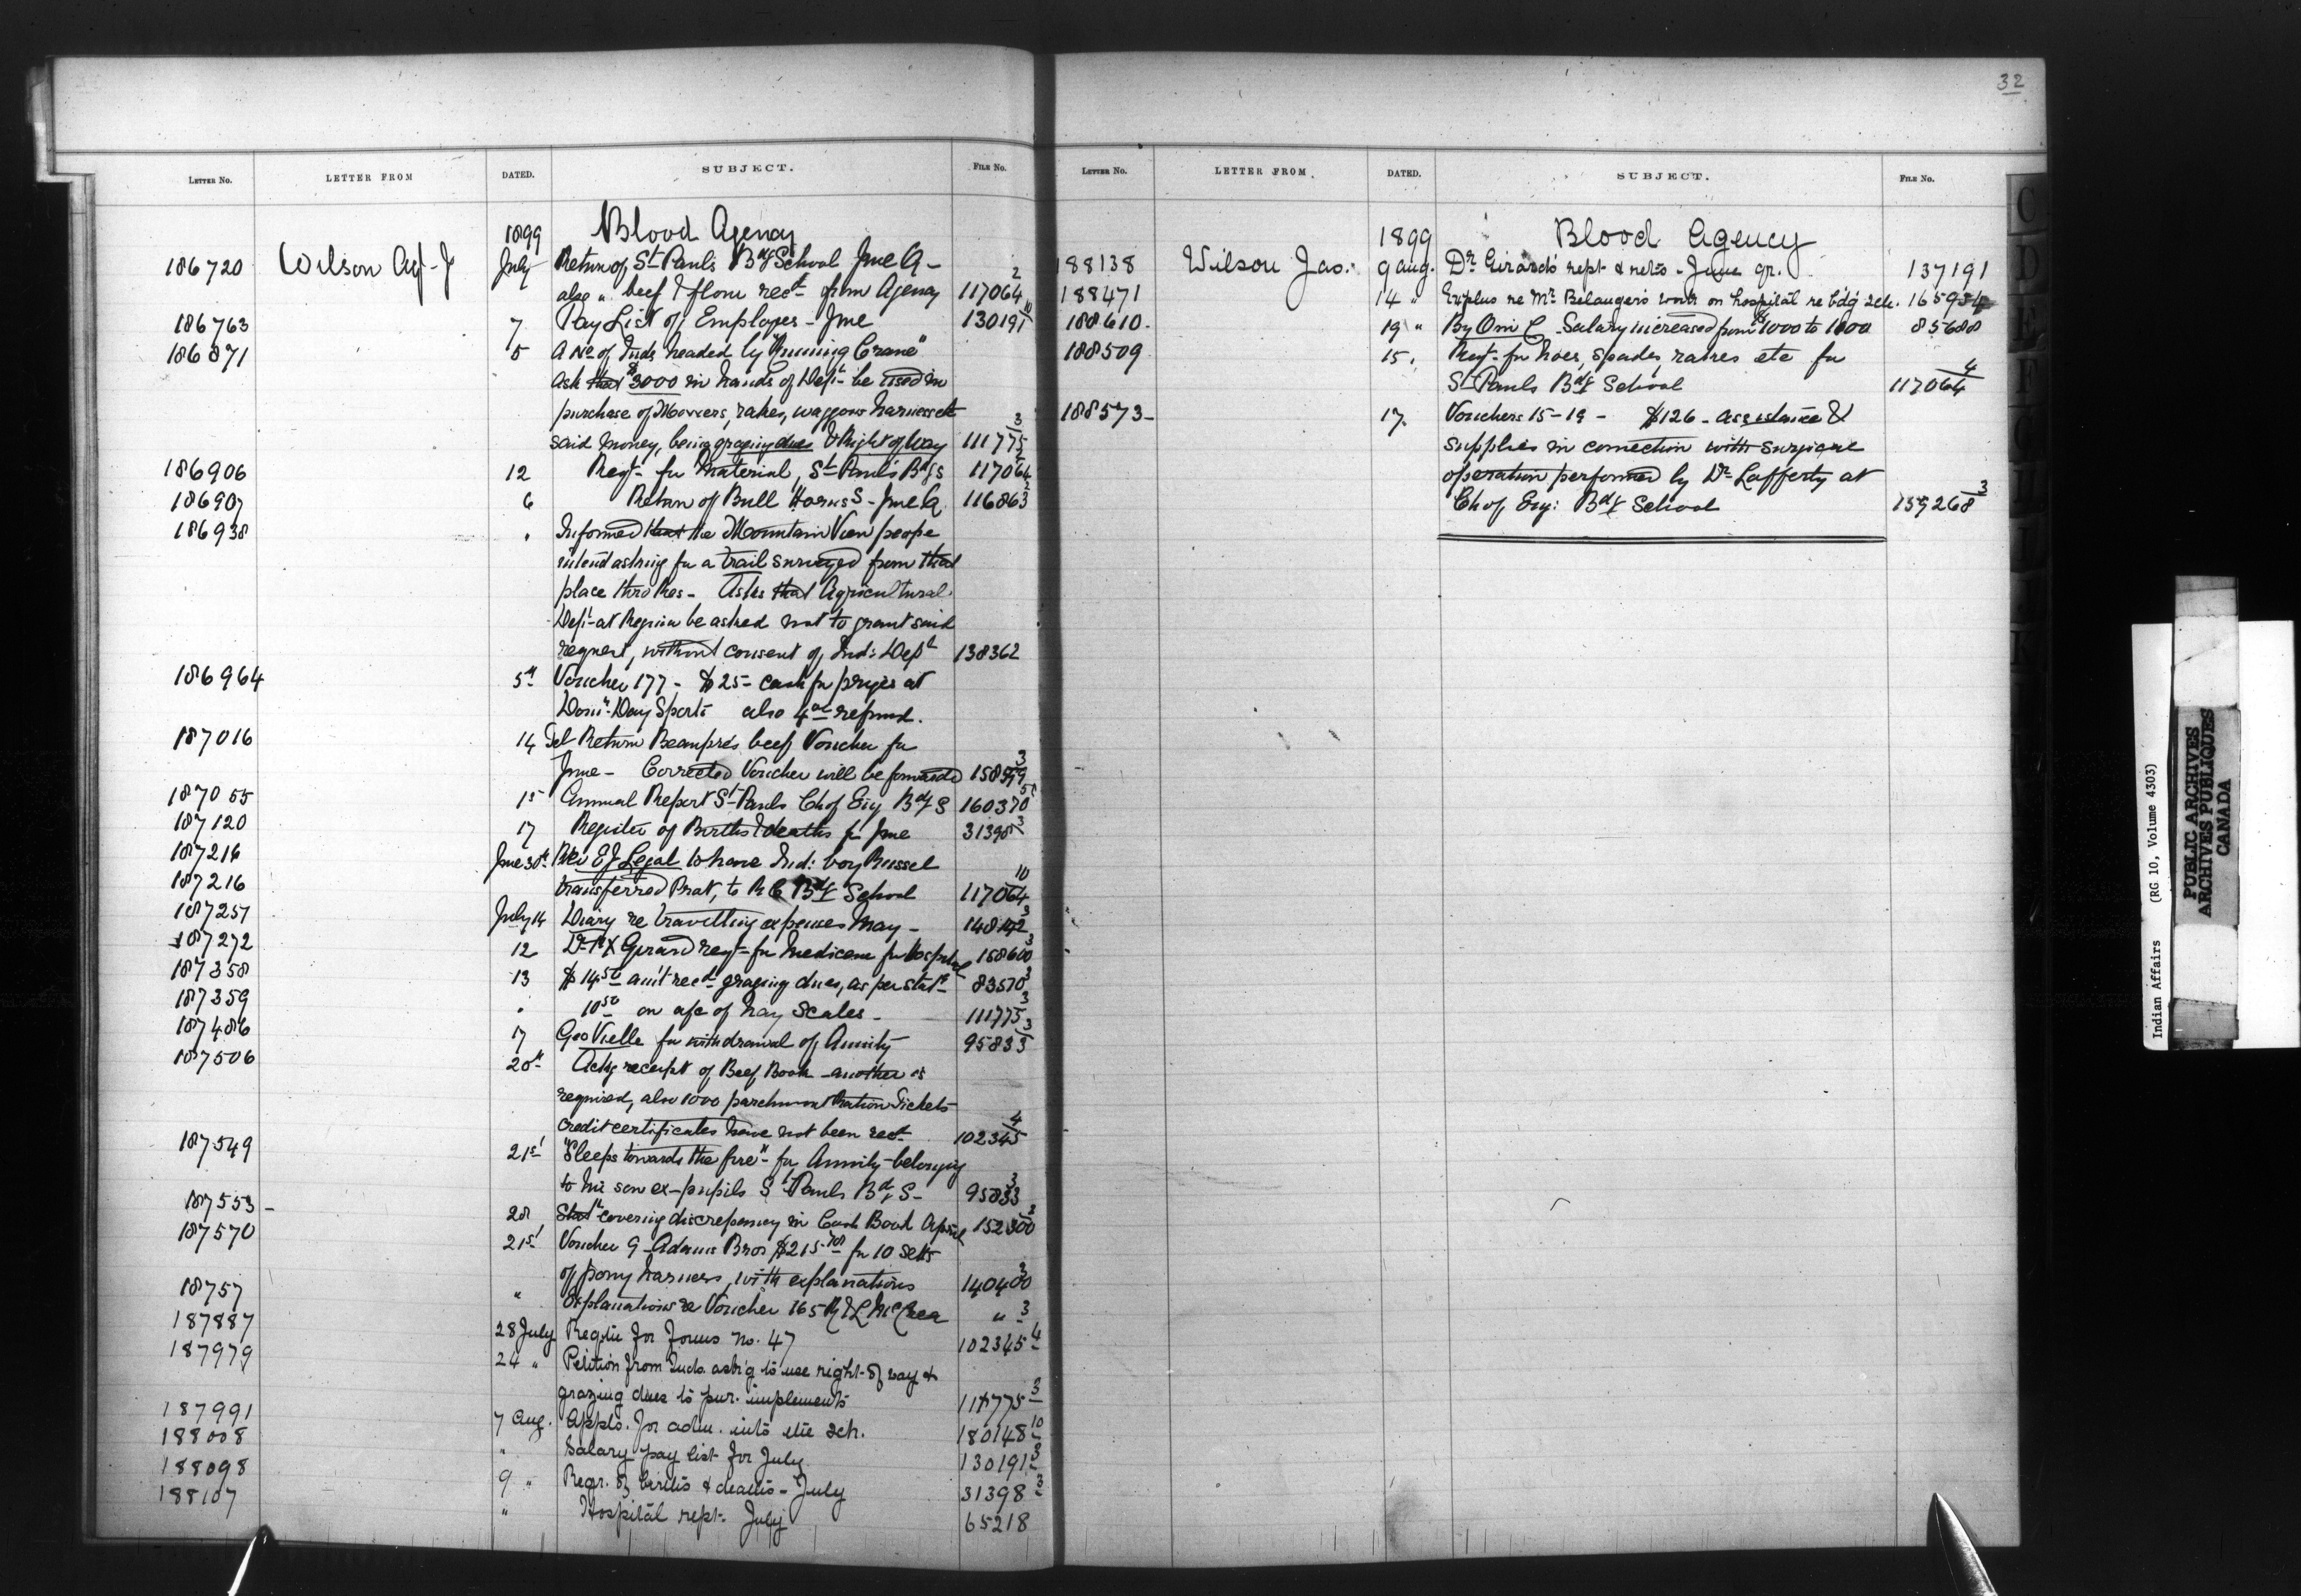 32
LETTER NO. LETTER FROM DATED. SUBJECT. FILE NO.
1899 Blood Agency
186720 Wilson Agt J July Return of St Paul's Bdg School June Q -
also " beef & flour recd from Agency 117064 2
186763 7 Pay List of Employes - June 130191 10
186871 5 A No of Inds headed by "Running Crane"
ask that $3000 in hands of Dept be used in
purchase of Mowers, rakes, waggons harness etc
said money, being grazing dues & Right of Way 111775 3
186906 12 Reqt for Material, St Paul's Bdg S 117064
186907 6 Return of Bull Horns S - June Q 116863 2
186938 " Informed that the Mountain View people
intend asking for a trail surveyed from that
place thro Res - Asks that Agricultural
Dept at Regina be asked not to grant said
request, without consent of Ind: Dept 138362
186964 5th Voucher 177 - $25 - cash for prizes at
Domn Day Sports also 4 refund.
187016 14 Tel Return Beaupré's beef Voucher for
June - Corrected Voucher will be forwarded 3
187055 15 Annual Report St Pauls Ch of Eng Bdg S 160370
187120 17 Register of Births & deaths for June 31398 3
187216 June 30th Rev E J Legal to have Ind: boy Russel
187216 transferred Prot, to R C Bdg School 117064 10
187257 July 14 Diary re travelling expenses May - 3
187272 12 Dr Girard reqt for Medicine for Hospital 158600 3
187358 13 $14.50 am't recd grazing dues, as per statt 83570 3
187359 " 10.50 on a/c of hay scales - 111775 3
187486 17 Geo Vielle for withdrawal of Annuity 95833 3
187506 20th Ackg receipt of Beef Book - another is
required, also 1000 parchment Ration Tickets
credit certificates have not been recd 102345 4
187549 21st "Sleeps towards the fire" - for Annuity belonging
to his son ex-pupils St Pauls Bdg S - 95833 3
187553 - 28 Statt covering discrepancy in Cash Book April 152300 3
187570 21st Voucher 9 - Adams Bros $215 for 10 setts
of pony harness, with explanations 140400 3
18757 " Explanations re Voucher 165 R & L McCrea " 3
187887 28 July Reqtn for forms no. 47 102345 4
187979 24 " Petition from Inds. ask'g to use right of way &
grazing dues to pur. implements 111775 3
187991 7 Aug. Appls. for adm. into the sch. 180148 10
188008 " Salary pay list for July 130191 3
188098 9 " Regr. of births & deaths - July 31398 3
188107 " Hospital rept. July 65218
LETTER NO. LETTER FROM. DATED. SUBJECT. FILE NO.
1899 Blood Agency
188138 Wilson Jas. 9 Aug. Dr Girard's rept & retns - June qr. 137191
188471 14 " Explns re Mr. Belanger's work on hospital re bdg sch.
188610. 19 " By Om: C - Salary increased from $1000 to 1800 85688
188509 15. Reqt - for hoes, spades, rakes etc for
St Pauls Bdg School 117064 4
188573 - 17. Vouchers 15-19 - $126 - assistance &
supplies in connection with surgical
operation performed by Dr Lafferty at
Ch of Eng: Bdg School 159268 3
Indian Affairs (RG 10, Volume 4303)
PUBLIC ARCHIVES
ARCHIVES PUBLIQUES
CANADA